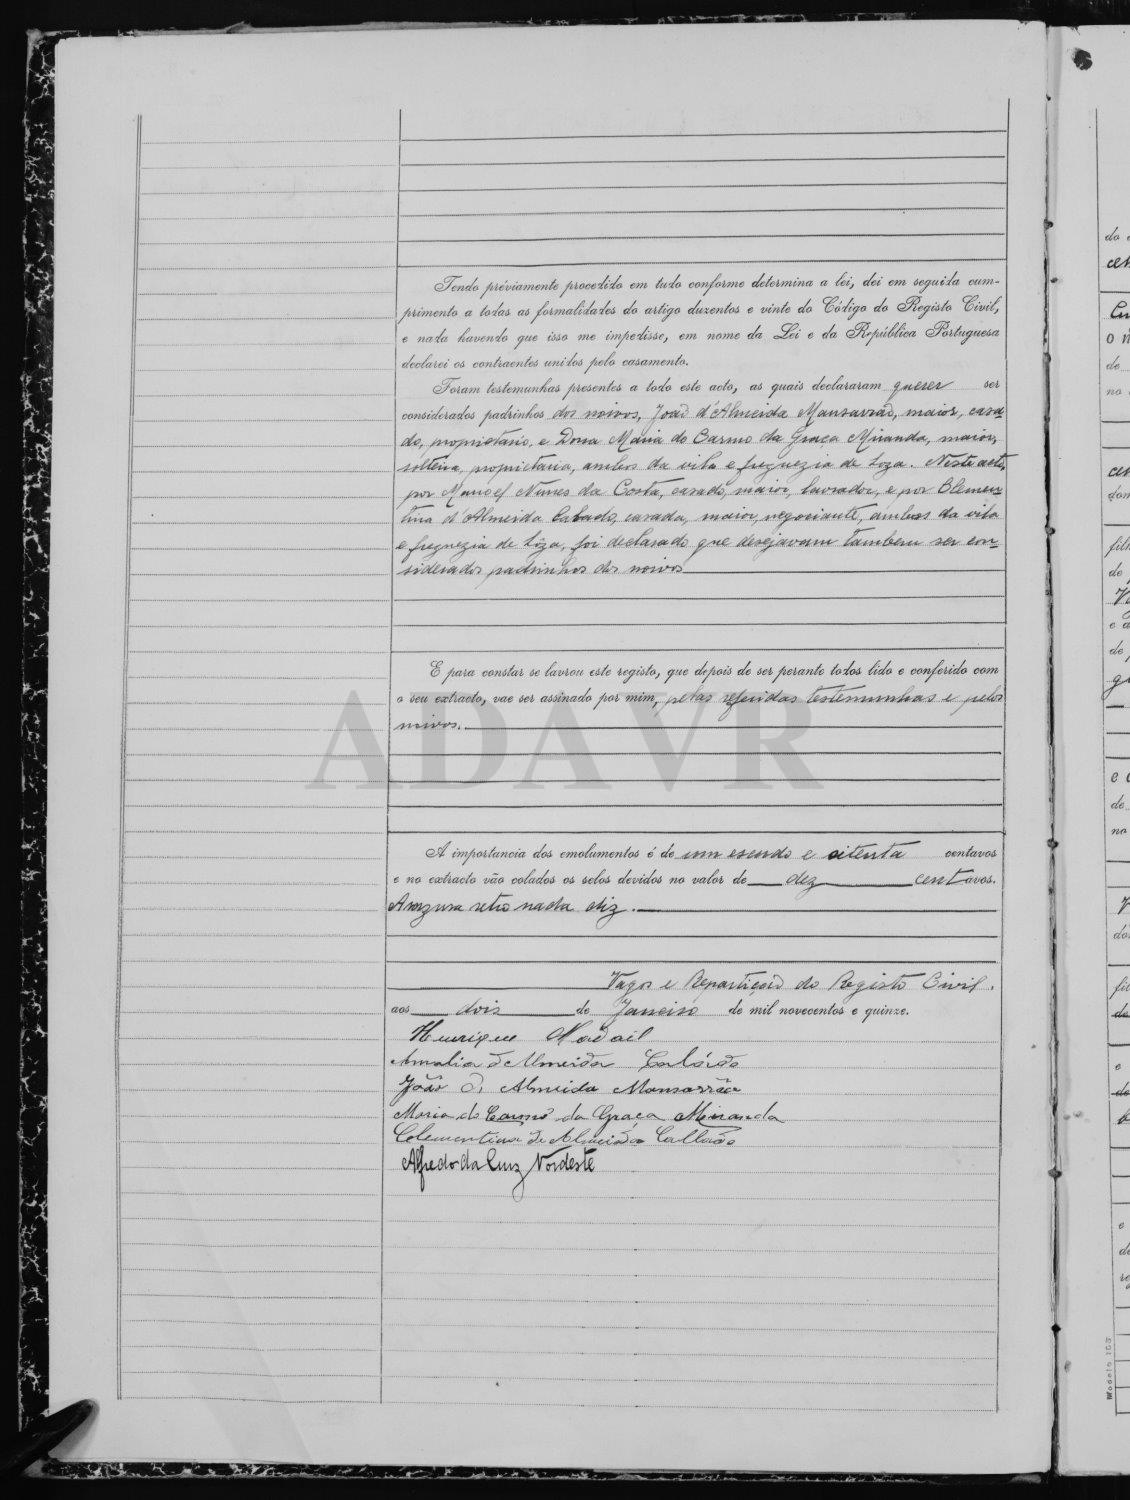 Tendo préviamente procedido em tudo conforme determina a lei, dei em seguida cum-
primento a todas as formalidades do artigo duzentos e vinte do Código do Registo Civil,
e nada havendo que isso me impedisse, em nome da Lei e da República Portuguesa
declarei os contraentes unidos pelo casamento.
Foram testemunhas presentes a todo este acto, as quais declararam querer ser
considerados padrinhos dos noivos, João d'Almeida Mansarrão, maior, casa-
do, proprietario, e Dona Maria do Carmo da Graça Miranda, maior,
solteira, proprietaria, ambos da vila e freguezia de Soza. Neste acto,
por Manoel Nunes da Costa, casado, maior, lavrador, e por Clemen-
tina d'Almeida Calado, casada, maior, negociante, ambos da vila
e freguezia de Soza, foi declarado que desejavam tambem ser con-
siderados padrinhos dos noivos
E para constar se lavrou este registo, que depois de ser perante todos lido e conferido com
o seu extracto, vae ser assinado por mim, pelas referidas testemunhas e pelos
noivos.
ADAVR
A importancia dos emolumentos é de um escudo e oitenta centavos
e no extracto vão colados os selos devidos no valor de dez centavos.
A razura retro nada diz.
Vagos e Repartição do Registo Civil,
aos dois de Janeiro de mil novecentos e quinze.
Henrique
Amalia d'Almeida Calado
João d' Almeida Mansarrão
Maria do Carmo da Graça Miranda
Clementina de Almeida Callado
Alfredo da Cruz Nordeste
do
de
no
filh
de
e
de
e
de
no
de
e
e
Modelo 103